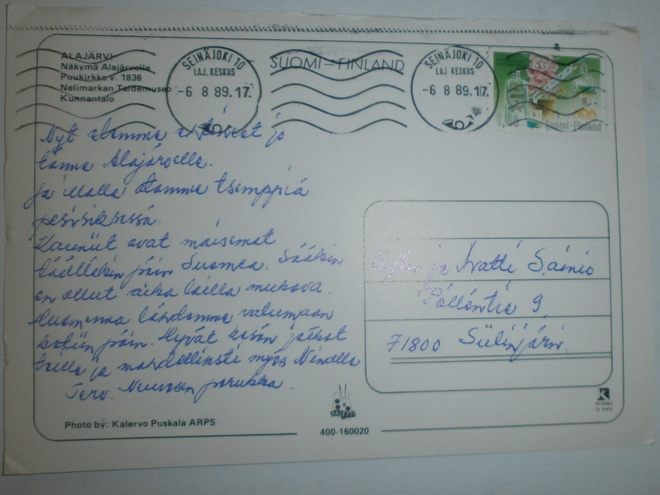 ALAJÄRVI
Näkymä Alajärvelle
Puukirkko v. 1836
Nelimarkan Taidemuseo
Kunnantalo
SEINÄJOKI 10
LAJ. KESKUS
-6 8 89.17
SUOMI-FINLAND
SEINÄJOKI 10
LAJ. KESKUS
-6 8 89.17
Suomi-Finland
Nyt olemme jo
täällä Alajärvellä.
ja illalla otamme tsemppiä
pesiksessä.
Kauniit ovat maisemat
täälläkin päin Suomea. Sääkin
on ollut aika lailla mukava.
Huomenna lähdemme valumaan
kotiin päin. Hyvät kesän jatkot
teille ja mahdollisesti myös
Terv. porukka.
ja Martti Sainio
Pöllöntie 9
71800 Siilinjärvi
Photo by: Kalervo Puskala ARPS
400-160020
K